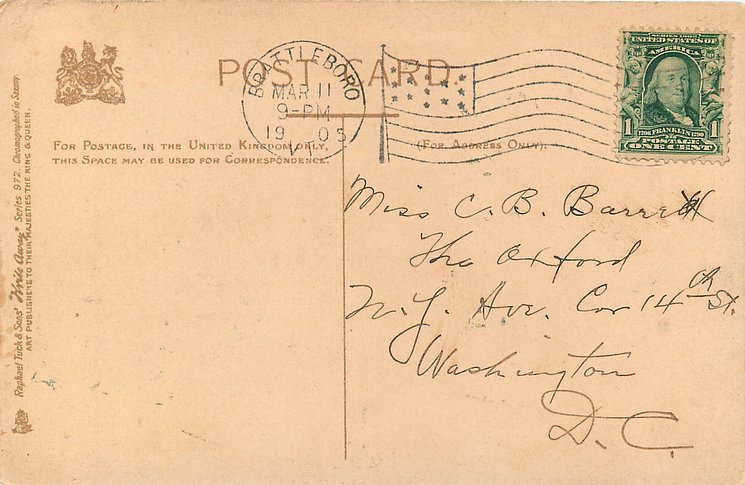 POST CARD
FOR POSTAGE, IN THE UNITED KINGDOM ONLY,
THIS SPACE MAY BE USED FOR CORRESPONDENCE.
(FOR ADDRESS ONLY)
BRATTLEBORO
MAR 11
9-PM
1905
VT.
SERIES 1902
UNITED STATES OF
AMERICA
1706 FRANKLIN 1790
1 POSTAGE 1
ONE CENT
Miss C. B. Barrett
The Oxford
N. Y. Ave. Cor 14th St.
Washington
D. C.
Raphael Tuck & Sons' "Write Away" Series 972. Chromographed in Saxony.
ART PUBLISHERS TO THEIR MAJESTIES THE KING & QUEEN.